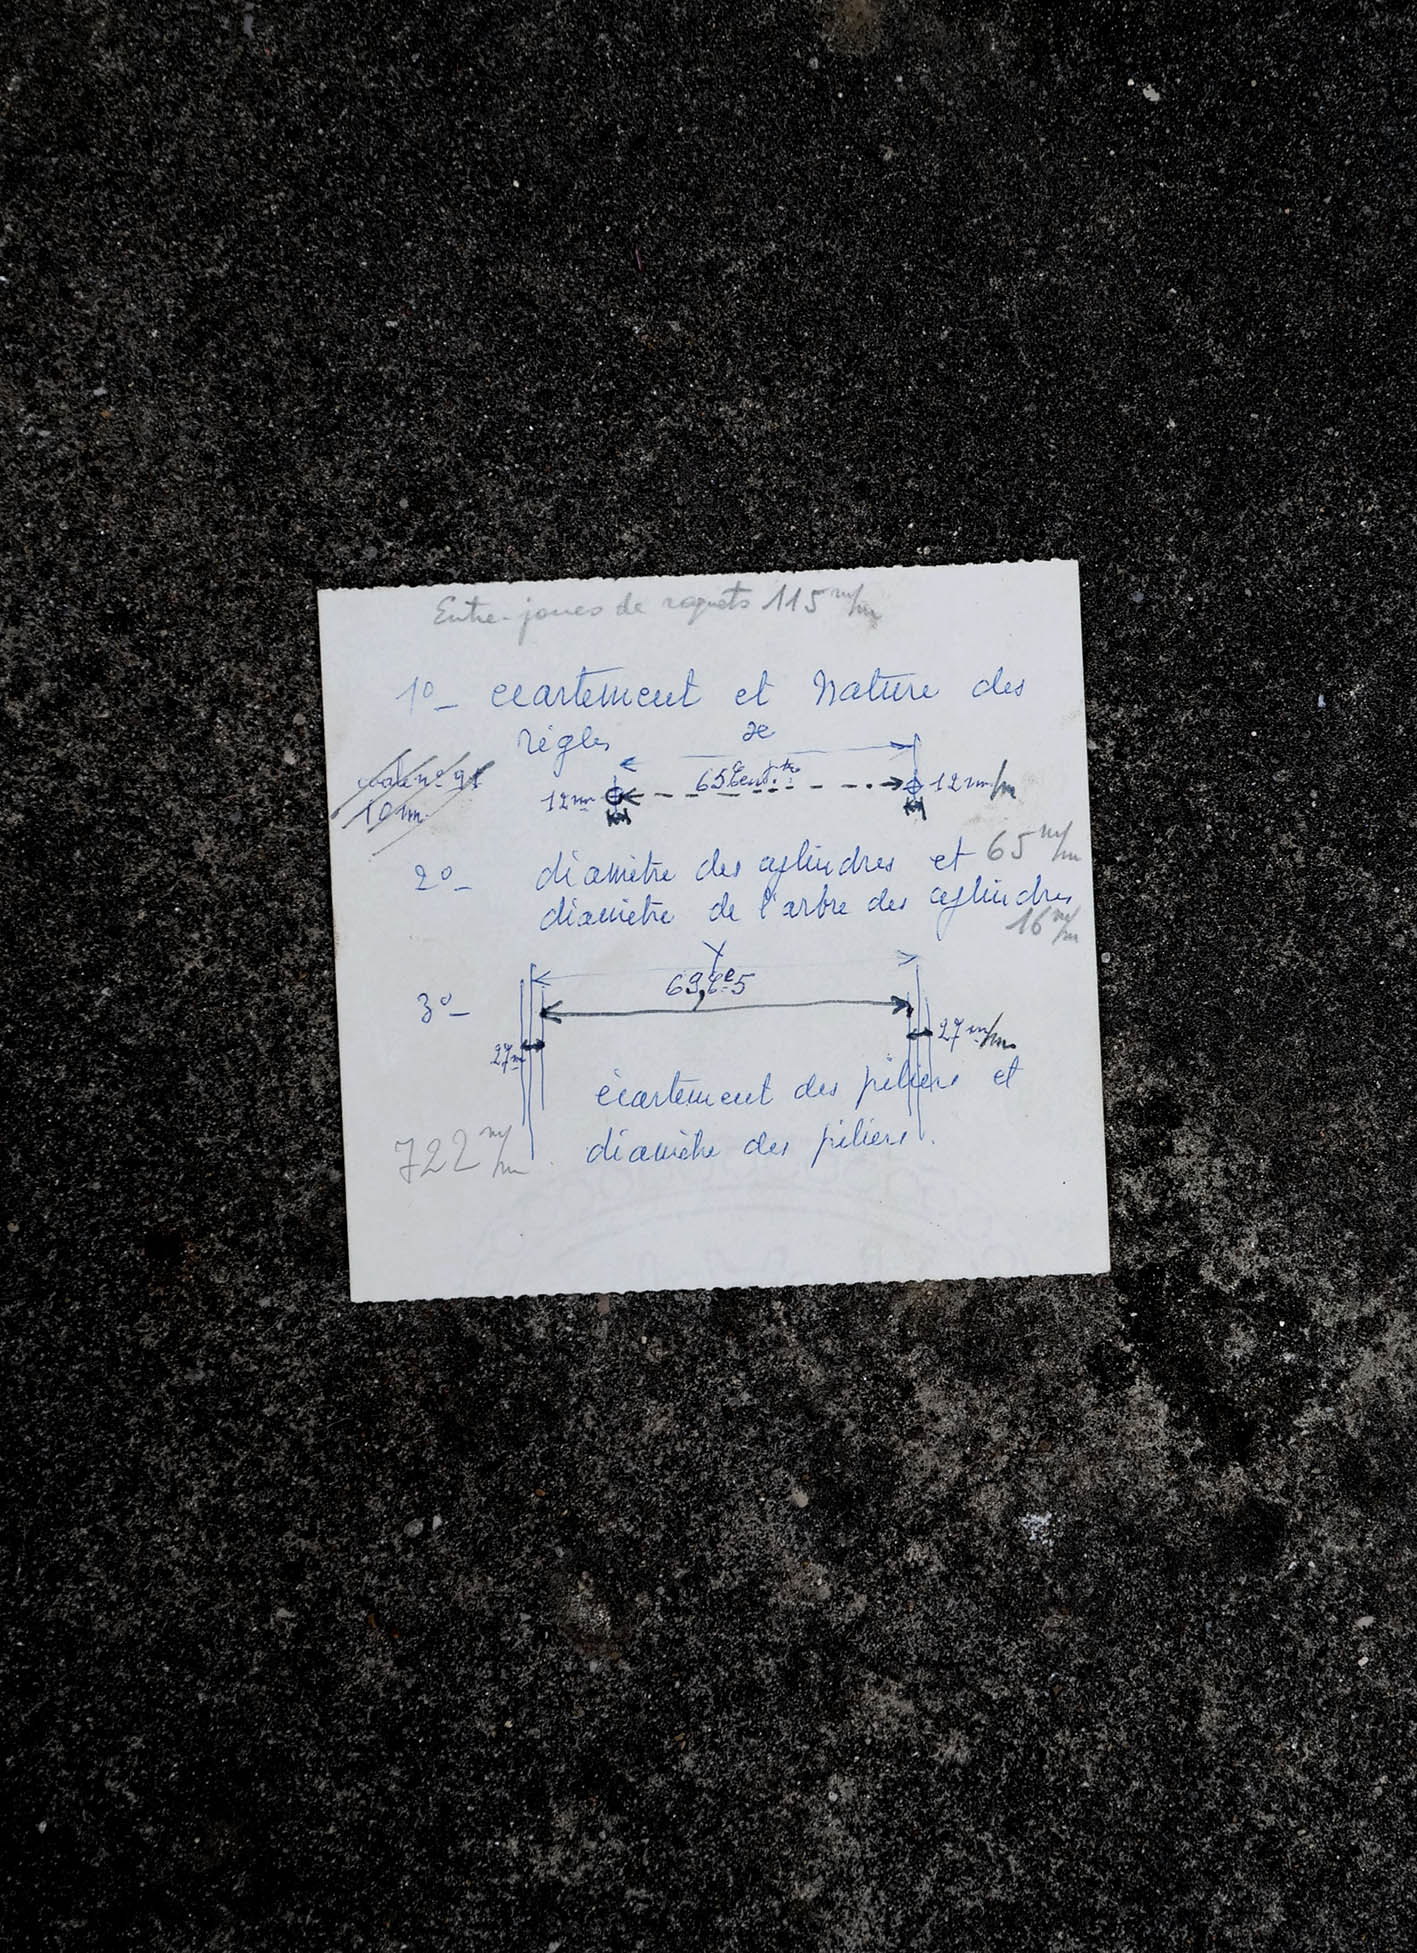 Entre-joues de roquets 115 m/m
1º_ ecartement et Nature des
règles
x
65 Cent.
12 mm
12 m/m
10 m
2º_ diamètre des cylindres et 65 m/m
diamètre de l'arbre des cylindres
16 m/m
Y
3º_
27 m
27 m/m
écartement des piliers et
722 m/m
diamètre des piliers.